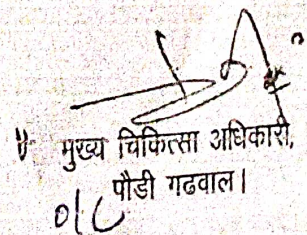 मुख्य चिकित्सा अधिकारी,
पौडी गढवाल।
O/C